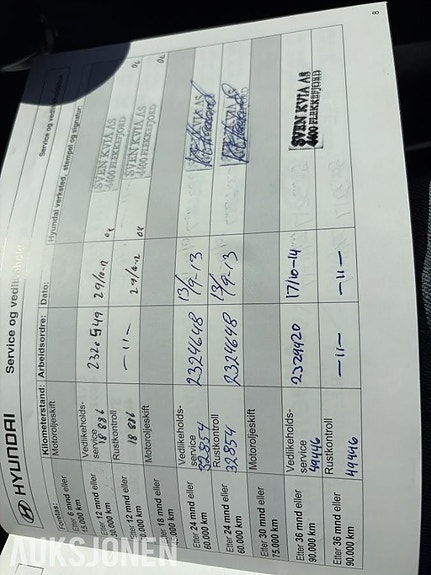 HYUNDAI
Service og vedlikehold
Foretas: Kilometerstand: Arbeidsordre: Dato: Hyundai verksted, stempel og signatur:
Etter 6 mnd eller
15.000 km
Motoroljeskift
Etter 12 mnd eller
30.000 km
Vedlikeholds-
service
18 886
SVEN KVIA AS
4400 FLEKKEFJORD
Etter 12 mnd eller
Rustkontroll
18 886
— 11 —
SVEN KVIA AS
4400 FLEKKEFJORD
Etter 18 mnd eller
Motoroljeskift
Etter 24 mnd eller
60.000 km
Vedlikeholds-
service
32854
2324648
13/9-13
Etter 24 mnd eller
60.000 km
Rustkontroll
32854
2324648
13/9-13
Etter 30 mnd eller
75.000 km
Motoroljeskift
Etter 36 mnd eller
90.000 km
Vedlikeholds-
service
49446
2329920
17/10-14
SVEN KVIA AS
4400 FLEKKEFJORD
Etter 36 mnd eller
90.000 km
Rustkontroll
49446
— 11 —
— 11 —
8
AUKSJONEN